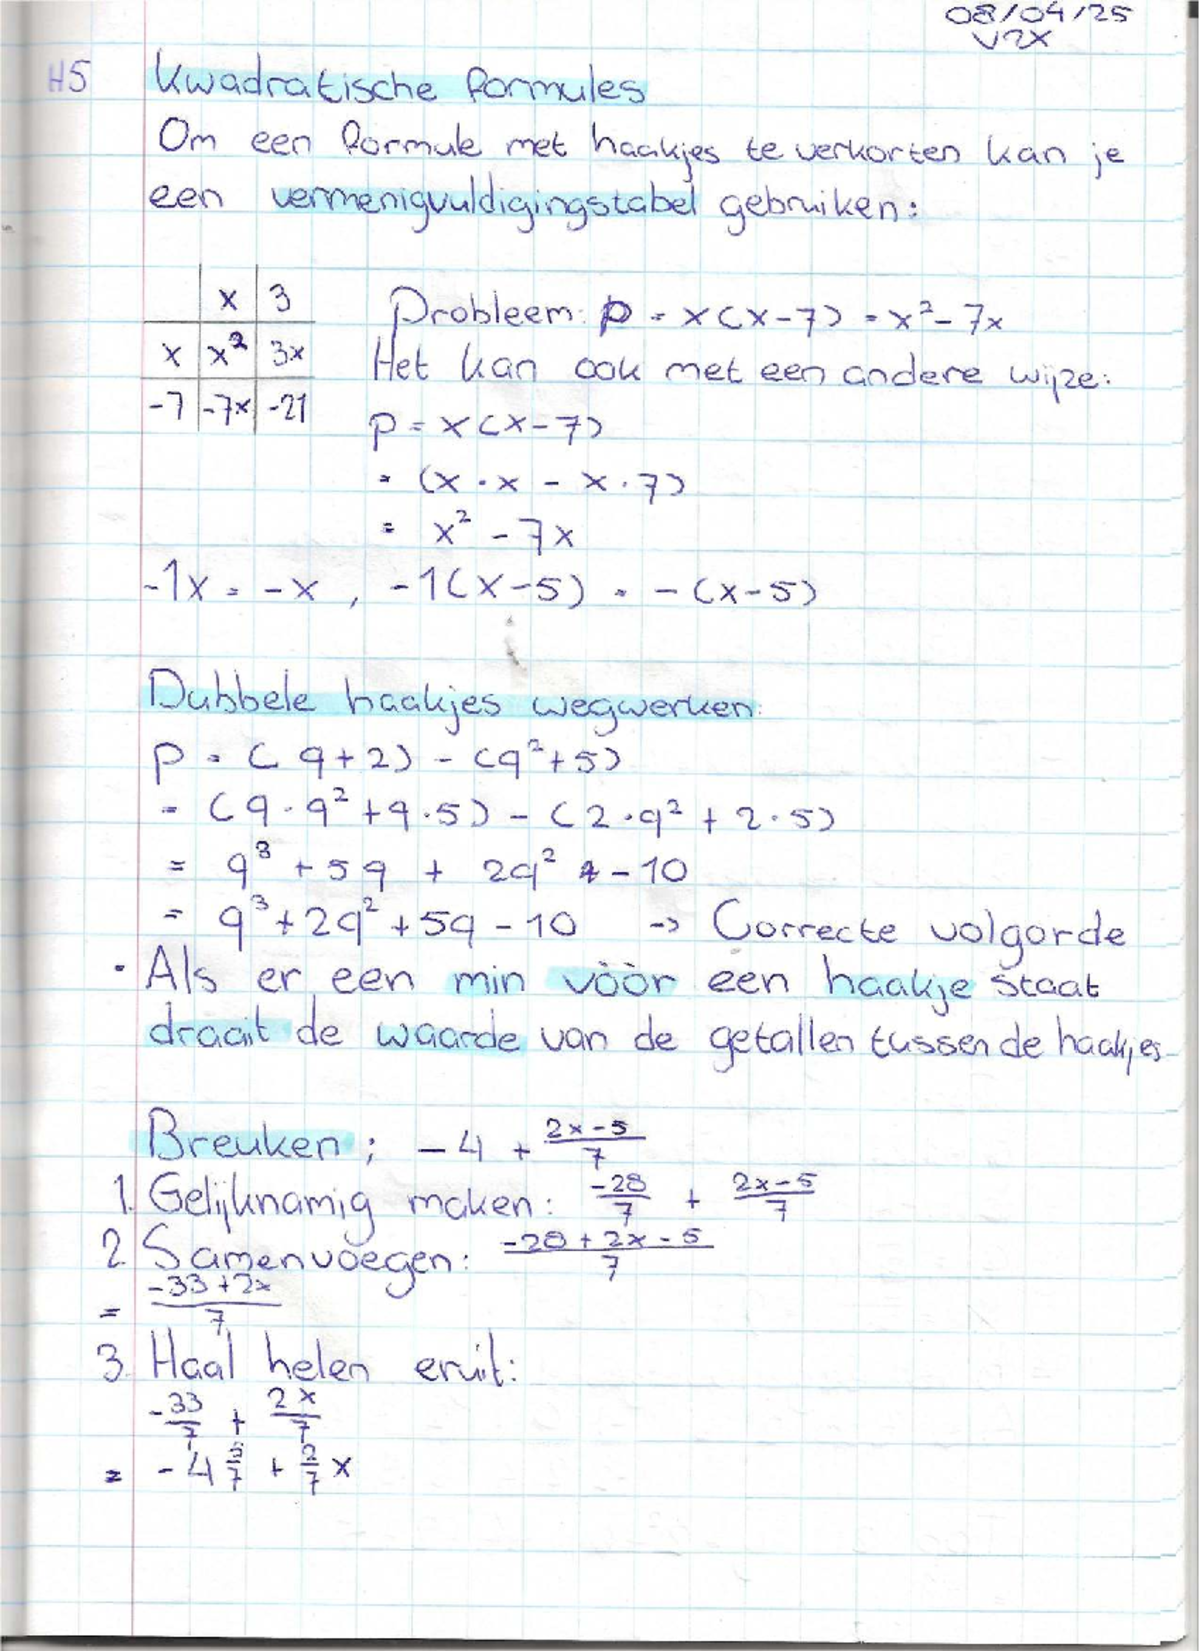 08/04/25
V2X
H5 Kwadratische formules
Om een formule met haakjes te verkorten kan je
een vermenigvuldigingstabel gebruiken:
x 3
x x² 3x
-7 -7x -21
Probleem: p = x(x-7) = x² - 7x
Het kan ook met een andere wijze:
p = x(x-7)
= (x · x - x · 7)
= x² - 7x
-1x = -x , -1(x-5) = -(x-5)
Dubbele haakjes wegwerken:
p = (q+2) - (q²+5)
= (q · q² + q · 5) - (2 · q² + 2 · 5)
= q³ + 5q + 2q² - 10
= q³ + 2q² + 5q - 10 -> Correcte volgorde
· Als er een min vòòr een haakje staat
draait de waarde van de getallen tussen de haakjes
Breuken ; -4 + (2x-5)/7
1. Gelijknamig maken: -28/7 + (2x-5)/7
2. Samenvoegen: (-28+2x-5)/7
= (-33+2x)/7
3. Haal helen eruit:
-33/7 + 2x/7
= -4 5/7 + 2/7 x